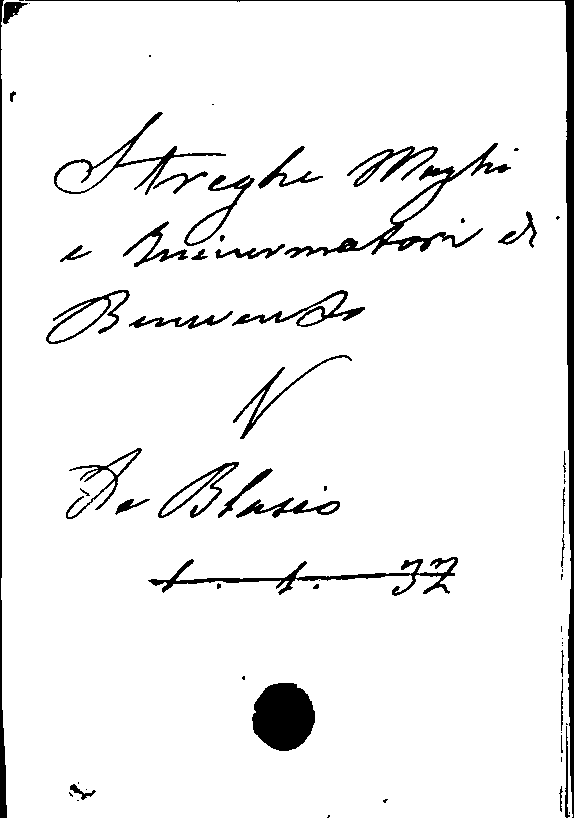 Streghe Maghi
e Incinermatori di
Benevento
V
De Blasio
1. 1. 32